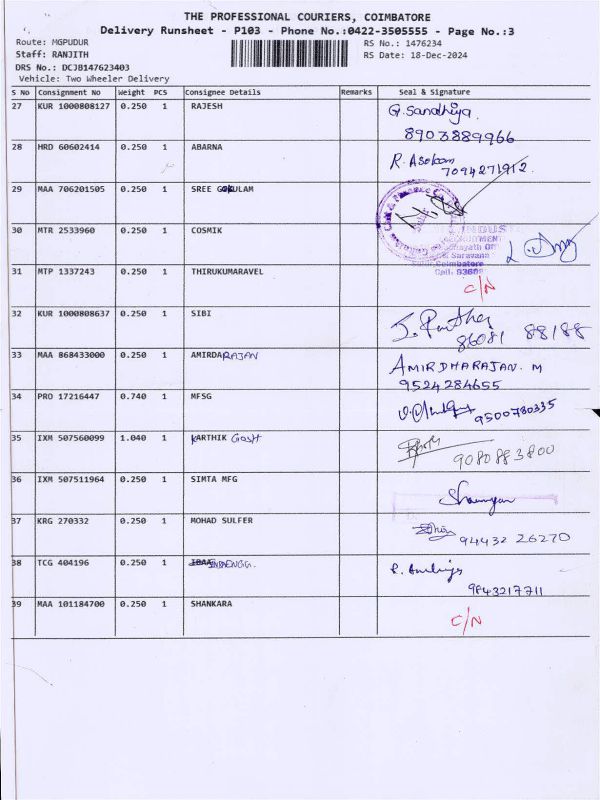 THE PROFESSIONAL COURIERS, COIMBATORE
Delivery Runsheet - P103 - Phone No.:0422-3505555 - Page No.:3
Route: MGPUDUR
RS No.: 1476234
Staff: RANJITH
RS Date: 18-Dec-2024
DRS No.: DCJB147623403
Vehicle: Two Wheeler Delivery
S No Consignment No Weight PCS Consignee Details Remarks Seal & Signature
27 KUR 1000808127 0.250 1 RAJESH G. Sandhiya
8903889966
28 HRD 60602414 0.250 1 ABARNA R. Asokan
7094271912.
29 MAA 706201505 0.250 1 SREE GOKULAM
30 MTR 2533960 0.250 1 COSMIK
31 MTP 1337243 0.250 1 THIRUKUMARAVEL C/N
32 KUR 1000808637 0.250 1 SIBI
86081 88188
33 MAA 868433000 0.250 1 AMIRDARAJAN AMIRDHARAJAN. M
9524284655
34 PRO 17216447 0.740 1 MFSG 9500780335
35 IXM 507560099 1.040 1 KARTHIK GOSH
9080883800
36 IXM 507511964 0.250 1 SIMTA MFG
37 KRG 270332 0.250 1 MOHAD SULFER
94432 26270
38 TCG 404196 0.250 1
9843217711
39 MAA 101184700 0.250 1 SHANKARA C/N